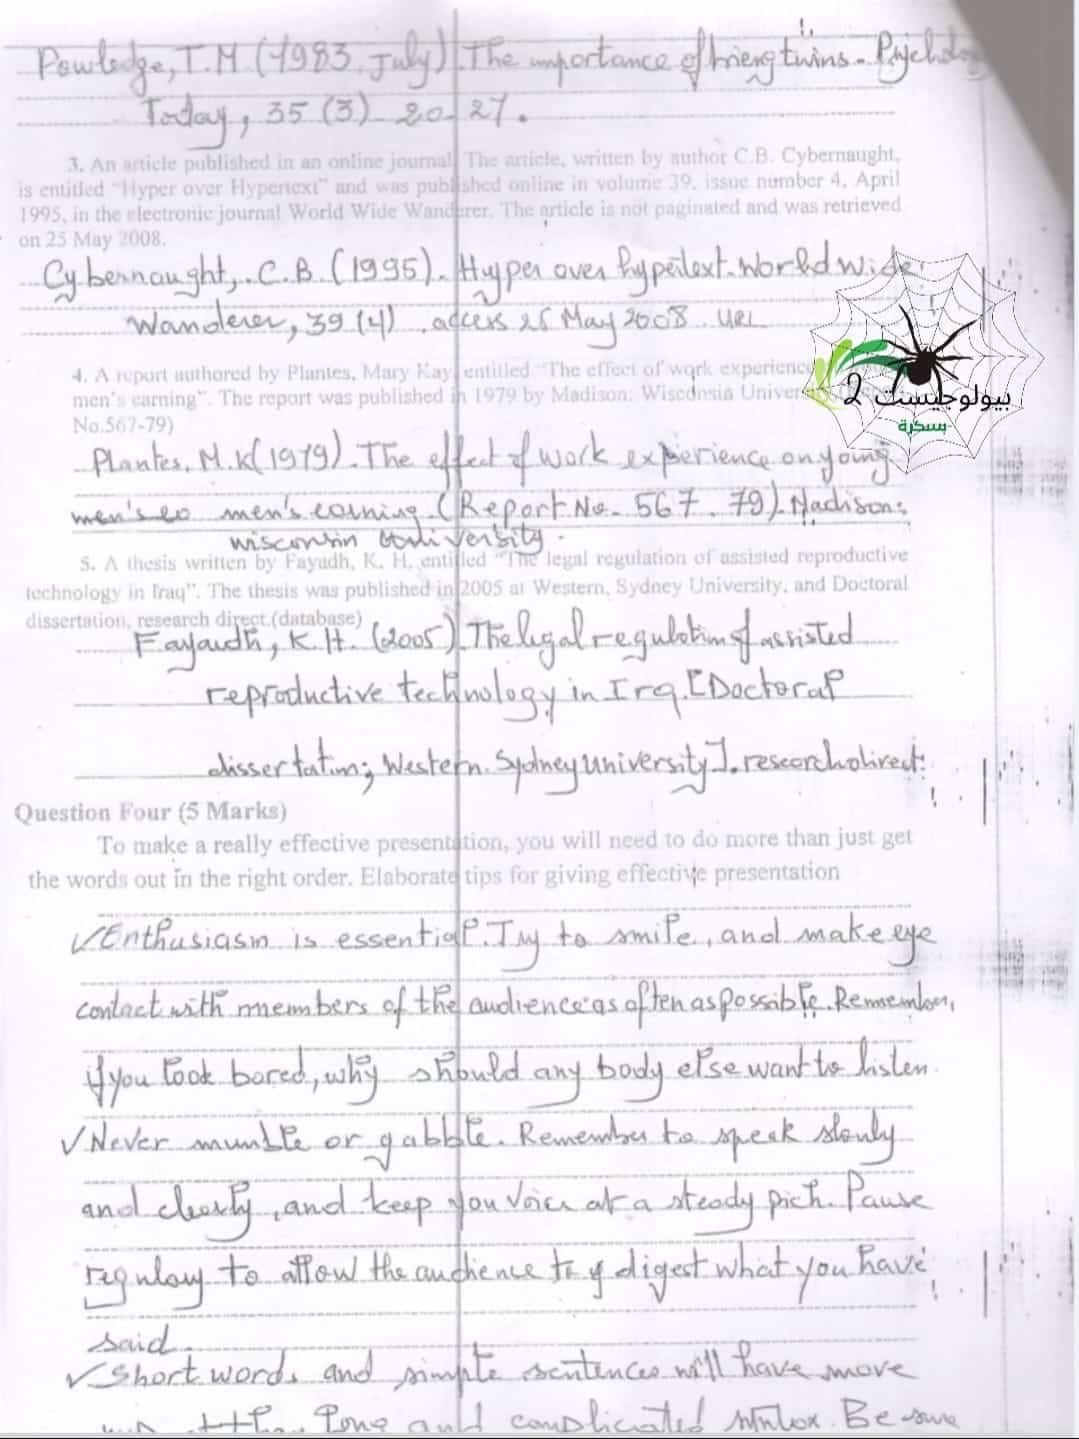 Powledge, T.M (1983, July). The importance of being twins. Psychology
Today, 35 (3) 20-27.
3. An article published in an online journal. The article, written by author C.B. Cybernaught,
is entitled "Hyper over Hypertext" and was published online in volume 39, issue number 4, April
1995, in the electronic journal World Wide Wanderer. The article is not paginated and was retrieved
on 25 May 2008.
Cybernaught, C.B. (1995). Hyper over hypertext. World Wide
Wanderer, 39 (4) access 25 May 2008 URL
4. A report authored by Plantes, Mary Kay, entitled "The effect of work experience
men's earning". The report was published in 1979 by Madison: Wisconsia
No.567-79)
بيولوجيست 2
بسكرة
Plantes, M.K (1979). The effect of work experience on young
men's men's earning. (Report No. 567-79). Madison:
wisconsin University.
5. A thesis written by Fayadh, K. H. entitled "The legal regulation of assisted reproductive
technology in Iraq". The thesis was published in 2005 at Western, Sydney University, and Doctoral
dissertation, research direct.(database)
Fayaudh, K.H. (2005). The legal regulation of assisted
reproductive technology in Irq. [Doctoral
dissertation; Western. Sydney University]. research direct.
Question Four (5 Marks)
To make a really effective presentation, you will need to do more than just get
the words out in the right order. Elaborate tips for giving effective presentation
✓ Enthusiasm is essential. Try to smile, and make eye
contact with members of the audience as often as possible. Remember,
if you look bored, why should any body else want to listen.
✓ Never mumble or gabble. Remember to speak slowly
and clearly, and keep you voice at a steady pich. Pause
regulary to allow the audience to digest what you have
said.
✓ Short words and simple sentences will have more
long and complicated syntax. Be sure